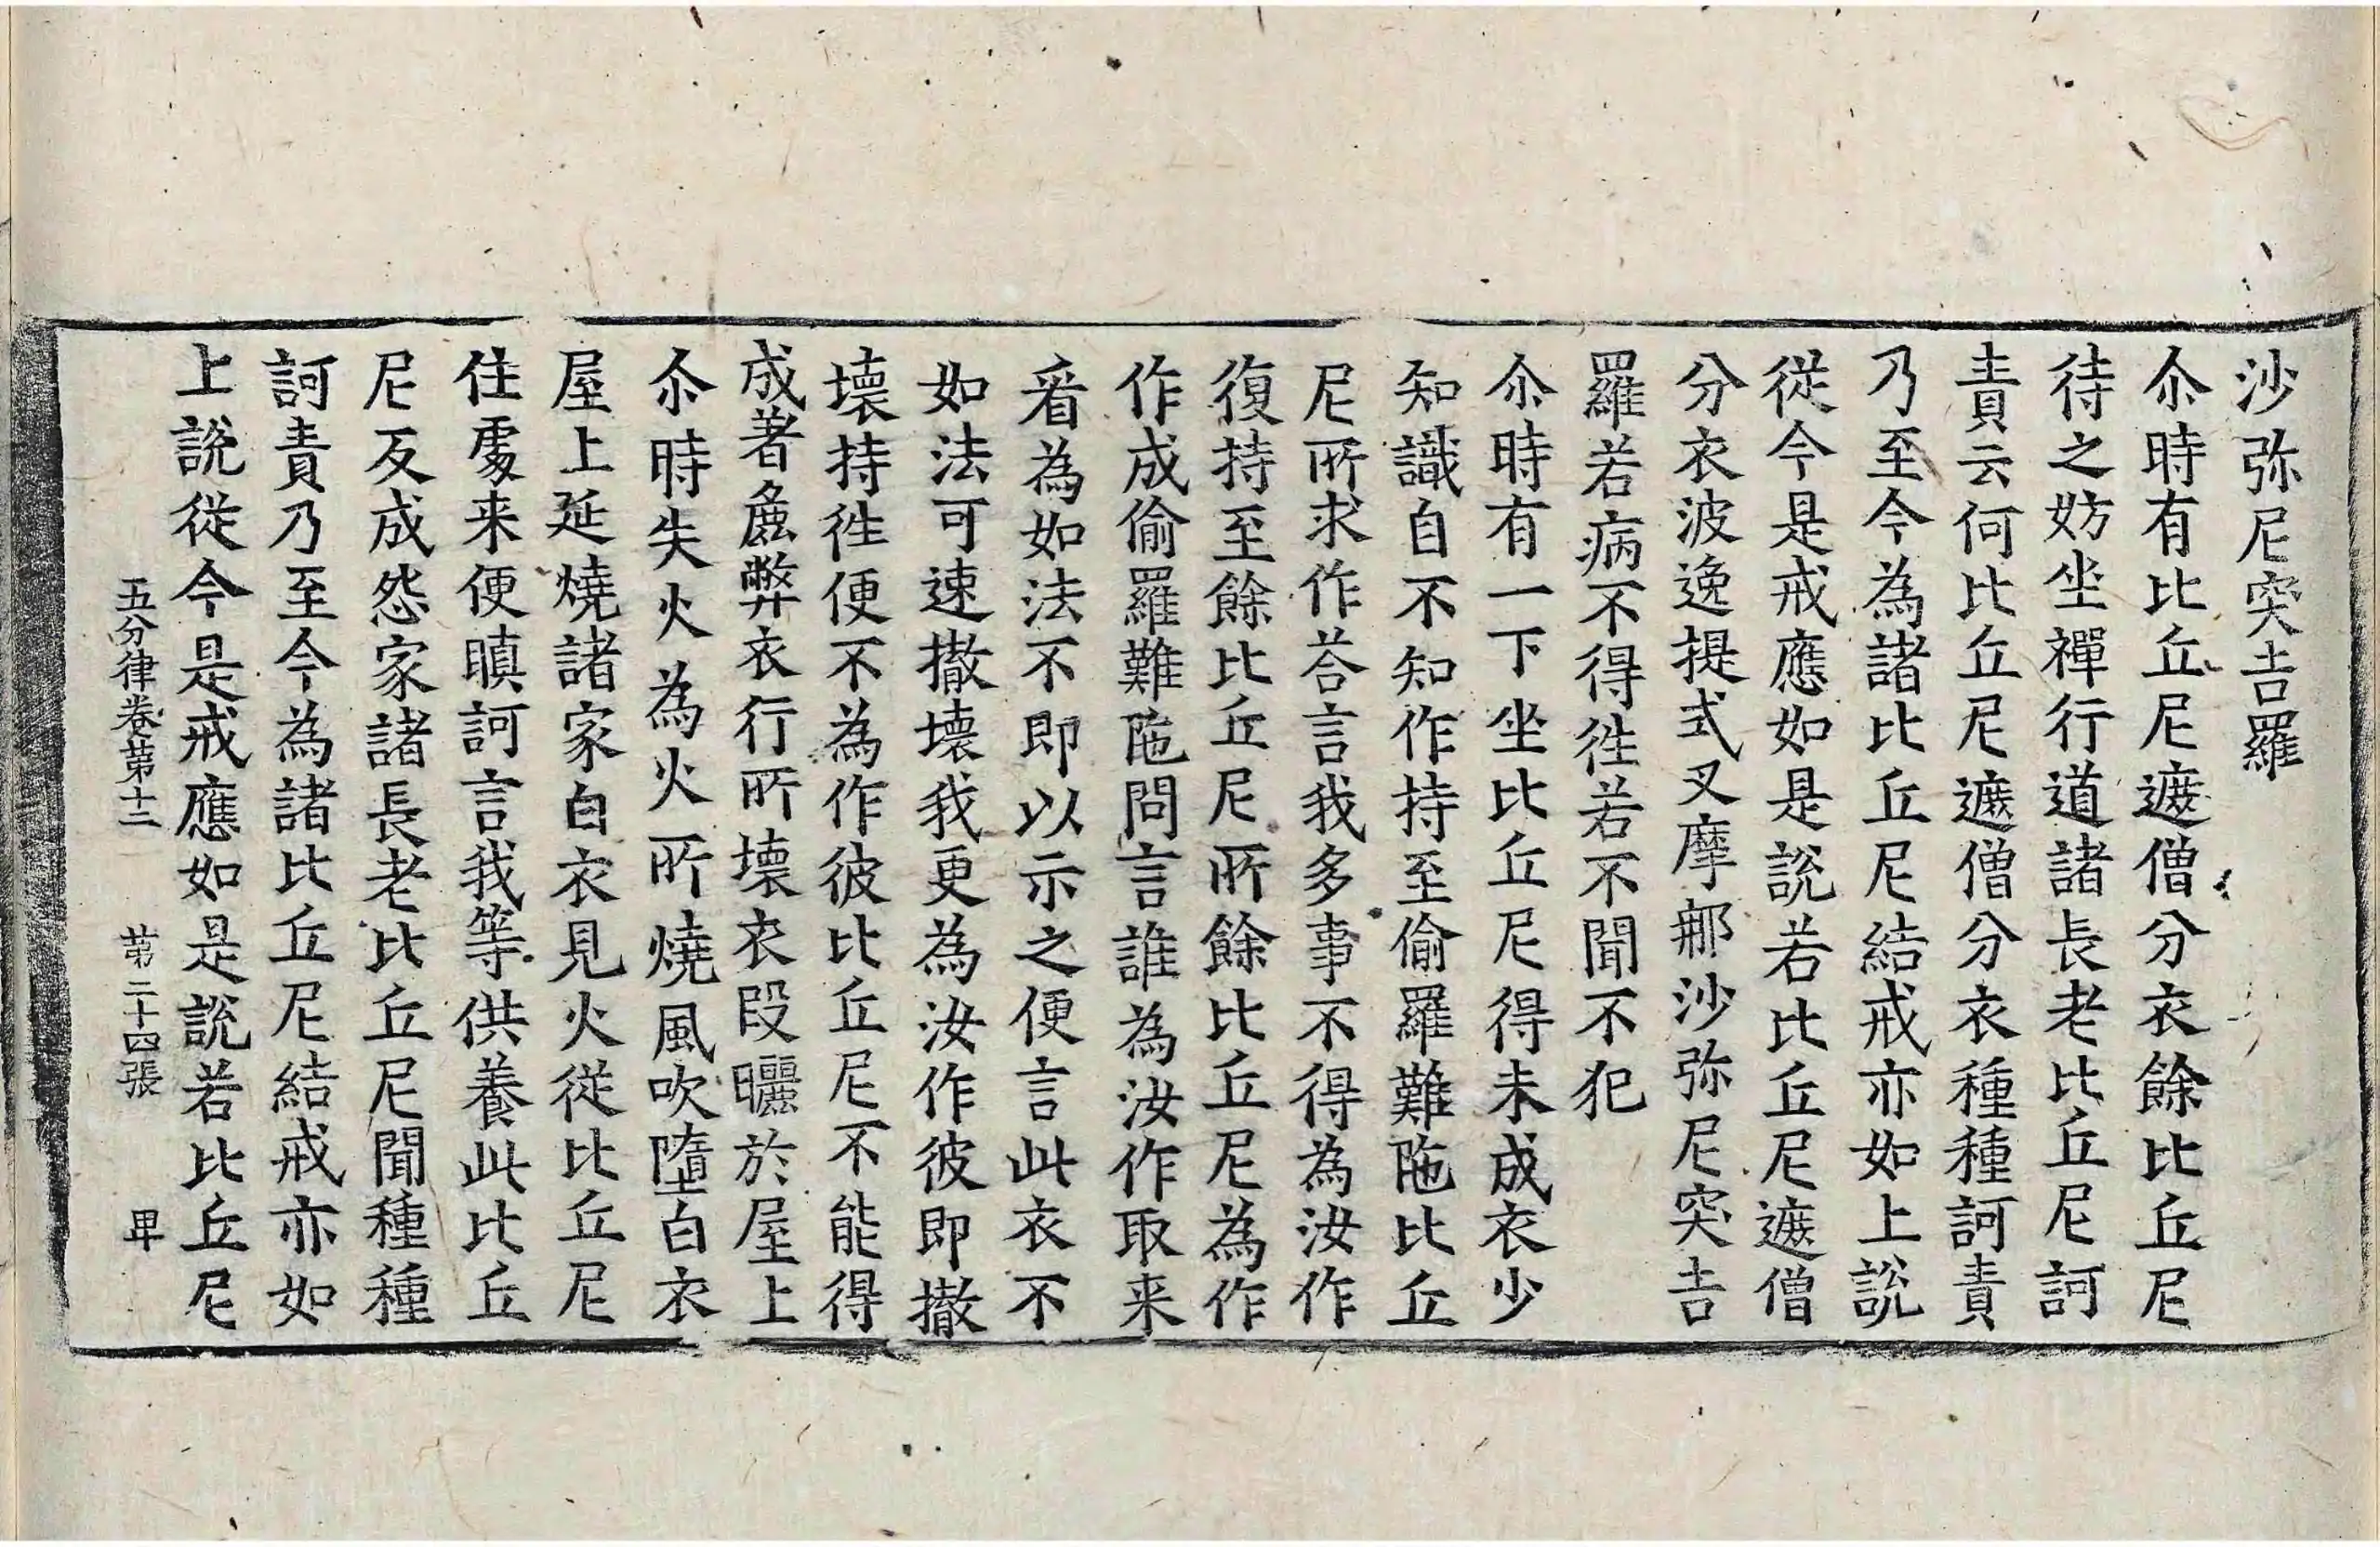 沙弥尼突吉羅
尒時有比丘尼遮僧分衣餘比丘尼
待之妨坐禪行道諸長老比丘尼訶
責云何比丘尼遮僧分衣種種訶責
乃至今為諸比丘尼結戒亦如上說
從今是戒應如是說若比丘尼遮僧
分衣波逸提式叉摩那沙弥尼突吉
羅若病不得徃若不聞不犯
尒時有一下坐比丘尼得未成衣少
知識自不知作持至偷羅難陁比丘
尼所求作荅言我多事不得為汝作
復持至餘比丘尼所餘比丘尼為作
作成偷羅難陁問言誰為汝作取来
看為如法不即以示之便言此衣不
如法可速撤壞我更為汝作彼即撤
壞持徃便不為作彼比丘尼不能得
成著麁弊衣行所壞衣段曬於屋上
尒時失火為火所燒風吹墮白衣
屋上延燒諸家白衣見火從比丘尼
住處来便瞋訶言我等供養此比丘
尼反成怨家諸長老比丘尼聞種種
訶責乃至今為諸比丘尼結戒亦如
上說從今是戒應如是說若比丘尼
五分律卷第十三 第二十四張 卑